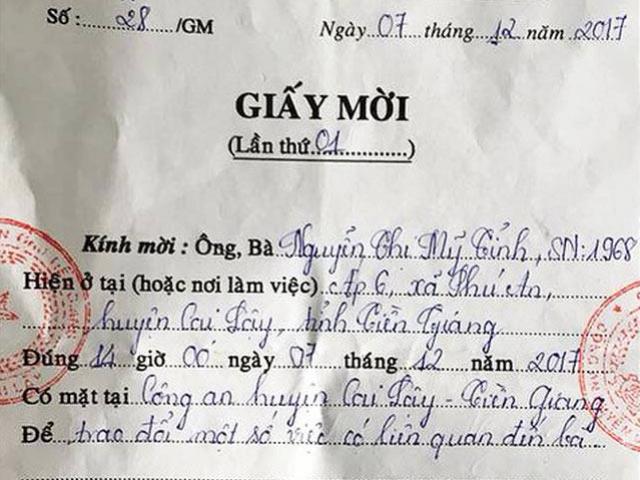 Số :........28....../GM Ngày...07.....tháng...12..năm 2017
GIẤY MỜI
(Lần thứ.01............)
Kính mời : Ông, Bà Nguyễn Thị Mỹ Tỉnh, SN: 1968
Hiện ở tại (hoặc nơi làm việc) ấp 6, xã Phú An,
huyện Cai Lậy, tỉnh Tiền Giang
Đúng 14 giờ 00 ngày 07 tháng 12 năm 2017
Có mặt tại Công an huyện Cai Lậy - Tiền Giang
Để trao đổi một số việc có liên quan đến bà...